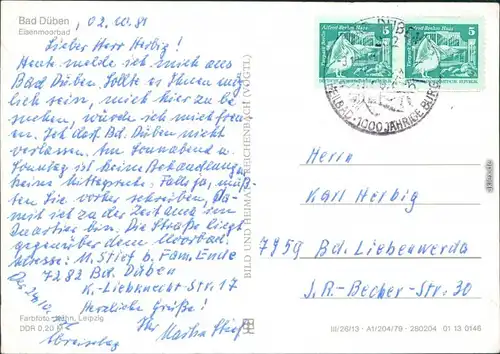 Bad Düben
Eisenmoorbad
02.10.81
Lieber Herr Herbig!
Heute melde ich mich aus
Bad Düben. Sollte es Ihnen mög-
lich sein, mich hier zu be-
suchen, würde ich mich freu-
en. Ich darf Bd. Düben nicht
verlassen. Am Sonnabend u.
Sonntag ist keine Behandlung,
keine Mittagsruhe. Falls ja, müß-
ten Sie vorher schreiben, Da-
mit ich zu der Zeit am im
Quartier bin. Die Straße liegt
gegenüber dem Moorbad.
Adresse: M. Stief b. Fam. Ende
7282 Bd. Düben
K.-Liebknecht-Str. 17
Herzliche Grüße!
Ihr Martha Stief
Farbfoto: Hahn, Leipzig
DDR 0,20 M
BILD UND HEIMAT REICHENBACH (VOGTL)
5
5
1000 JÄHRIGE BURG
Herrn
Karl Herbig
7959 Bd. Liebenwerda
J.-R.-Becher-Str. 30
III/26/13 · A1/204/79 · 280204 01 13 0146